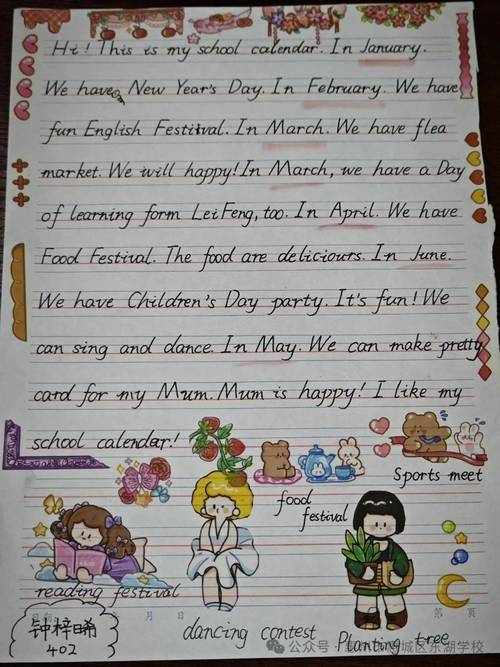 Hi! This is my school calendar. In January.
We have New Year's Day. In February. We have
fun English Festival. In March. We have flea
market. We will happy! In March, we have a Day
of learning form Lei Feng, too. In April. We have
Food Festival. The food are deliciours. In June.
We have Children's Day party. It's fun! We
can sing and dance. In May. We can make pretty
card for my Mum. Mum is happy! I like my
school calendar!
Sports meet
food
festival
reading festival
月 日
第 页
钟梓晞
402
dancing contest
Planting tree
公众号
城区东湖学校